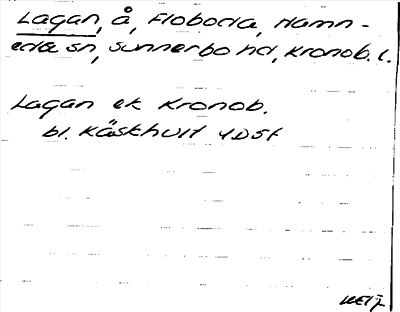 Lagan, å, Floboda, Hamn-
eda sn, Sunnerbo hd, Kronob. l.
Lagan ek Kronob.
bl. Käskhult 4D5f